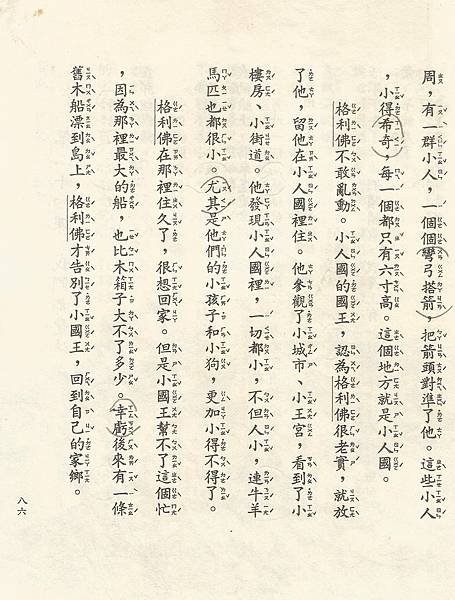 周，有一群小人，一個個彎弓搭箭，把箭頭對準了他。這些小人
，小得希奇，每一個都只有六寸高。這個地方就是小人國。
格利佛不敢亂動。小人國的國王，認為格利佛很老實，就放
了他，留他在小人國裡住。他參觀了小城市、小王宮，看到了小
樓房、小街道。他發現小人國裡，一切都小，不但人小，連牛羊
馬匹也都很小。尤其是他們的小孩子和小狗，更加小得不得了。
格利佛在那裡住久了，很想回家。但是小國王幫不了這個忙
，因為那裡最大的船，也比木箱子大不了多少。幸虧後來有一條
舊木船漂到島上，格利佛才告別了小國王，回到自己的家鄉。
八六